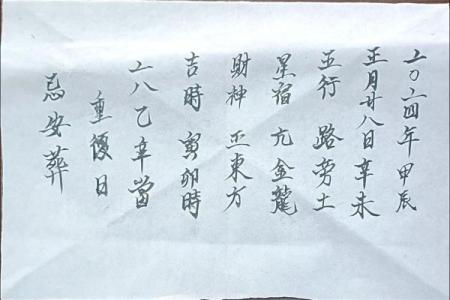 二〇二四年 甲辰
正月廿八日辛未
五行 路旁土
星宿 亢金龍
財神 正東方
吉時 寅卯時
二八乙辛當
重復日
忌安葬